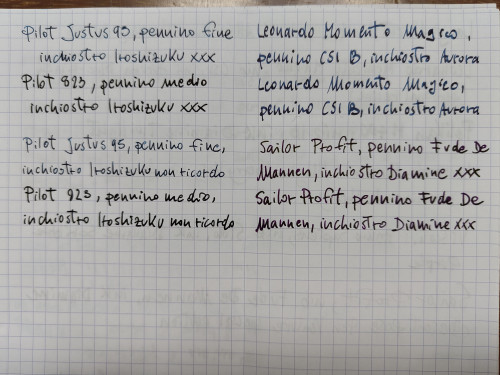 Pilot Justus 95, pennino fine
inchiostro Iroshizuku xxx
Pilot 823, pennino medio
inchiostro Iroshizuku xxx
Pilot Justus 95, pennino fine,
inchiostro Iroshizuku non ricordo
Pilot 923, pennino medio,
inchiostro Iroshizuku non ricordo
Leonardo Momento Magico,
pennino CSI B, inchiostro Aurora
Leonardo Momento Magico,
pennino CSI B, inchiostro Aurora
Sailor Profit, pennino Fude De
Mannen, inchiostro Diamine xxx
Sailor Profit, pennino Fude De
Mannen, inchiostro Diamine xxx